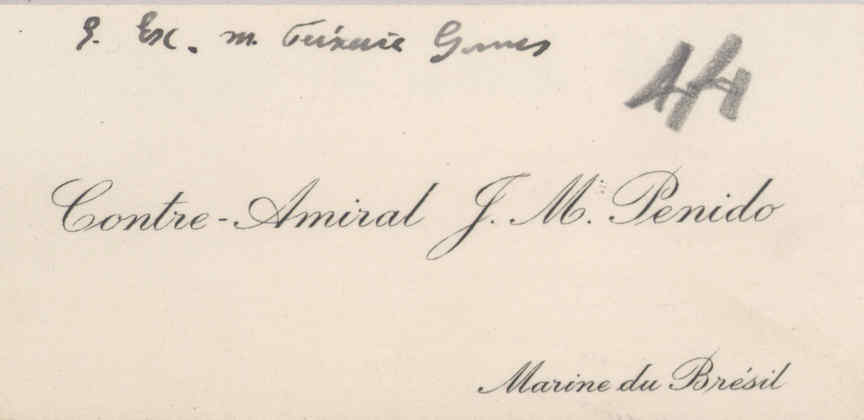 S. Exc. M. Teixeira Gomes
44
Contre-Amiral J. M. Penido
Marine du Brésil